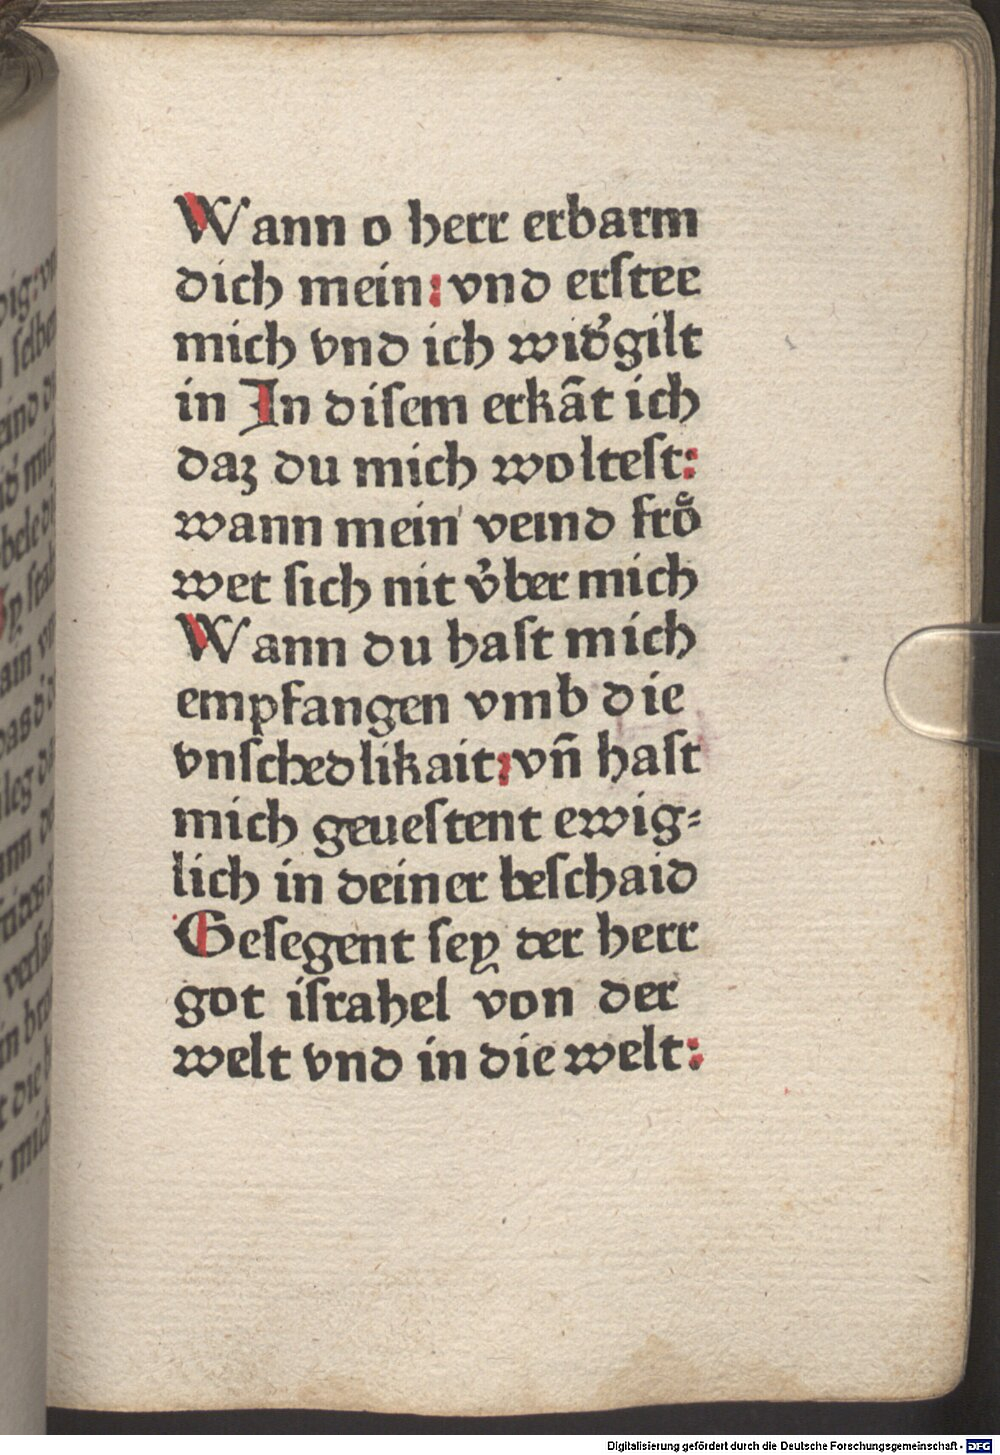 Wann o herr erbarm
dich mein: vnd erstee
mich vnd ich wid᷑gilt
in In disem erkāt ich
daz du mich woltest:
wann mein veind froͤ
wet sich nit v̓ber mich
Wann du hast mich
empfangen vmb die
vnschedlikait: vn̄ hast
mich geuestent ewig⸗
lich in deiner beschaid
Gesegent sey der herr
got israhel von der
welt vnd in die welt:
Digitalisierung gefördert durch die Deutsche Forschungsgemeinschaft - DFG